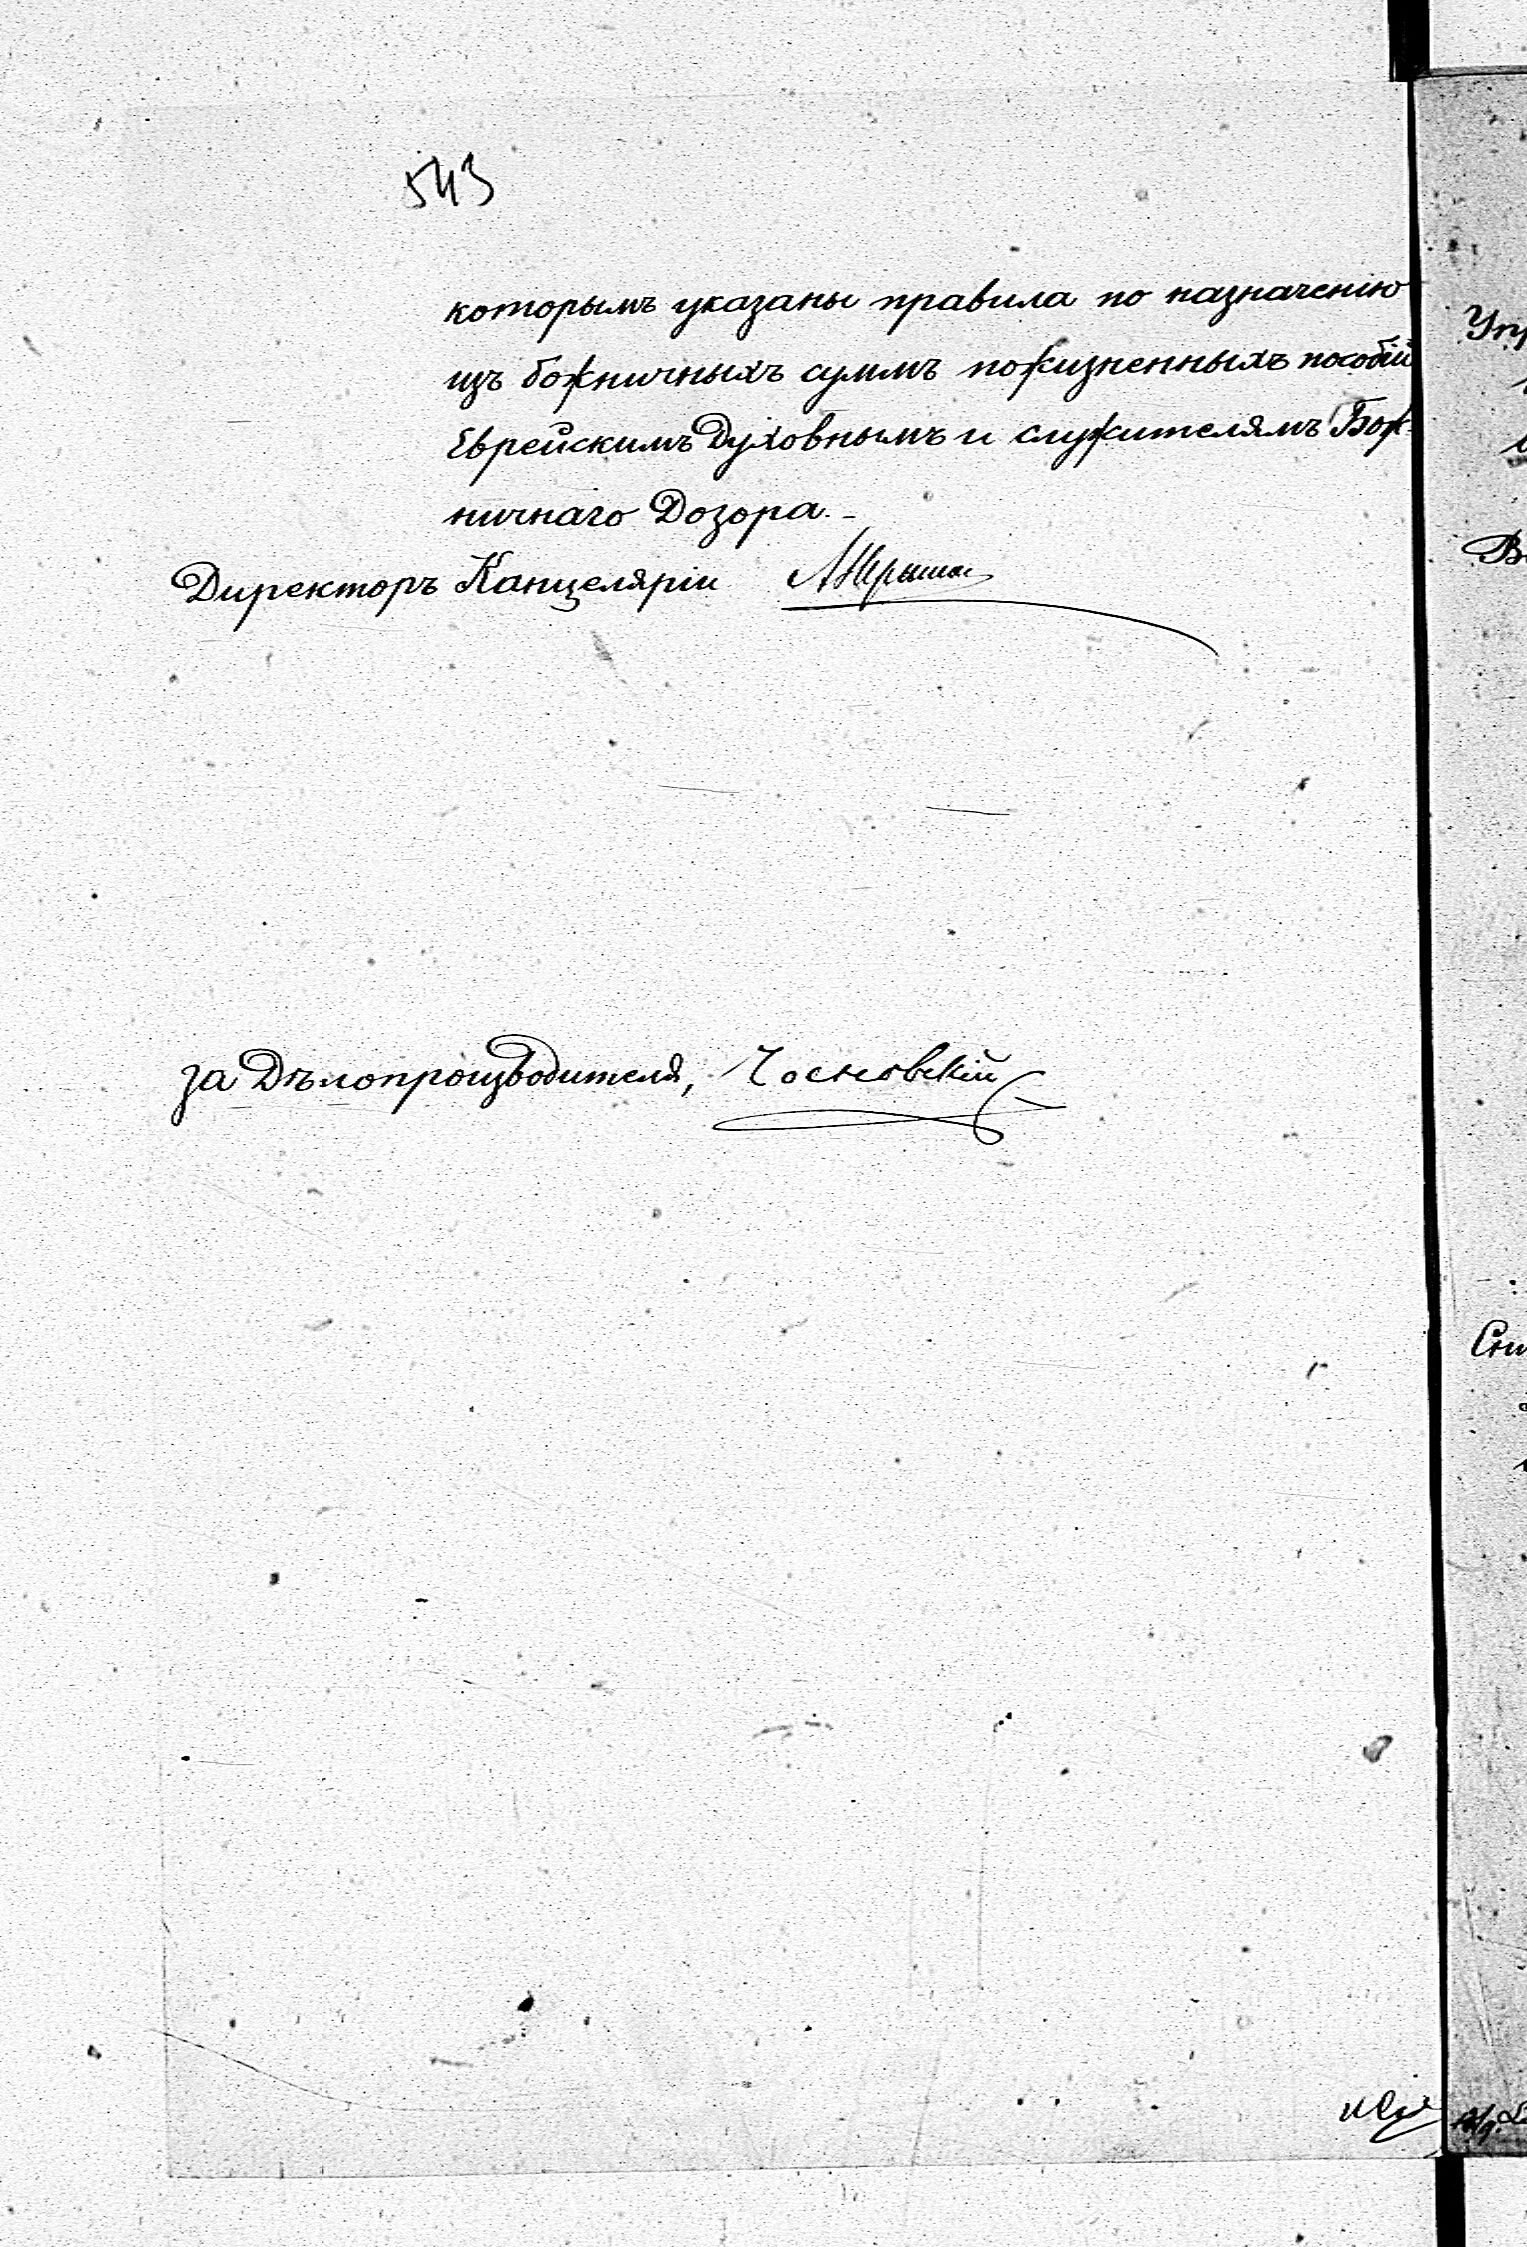 543
которымъ указаны правила по назначенію
изъ божничныхъ суммъ пожизненныхъ пособій
Еврейскимъ Духовнымъ и служителямъ Бож-
ничнаго Дозора.-
Директоръ Канцеляріи
за Дѣлопроизводителя, Чосновскій